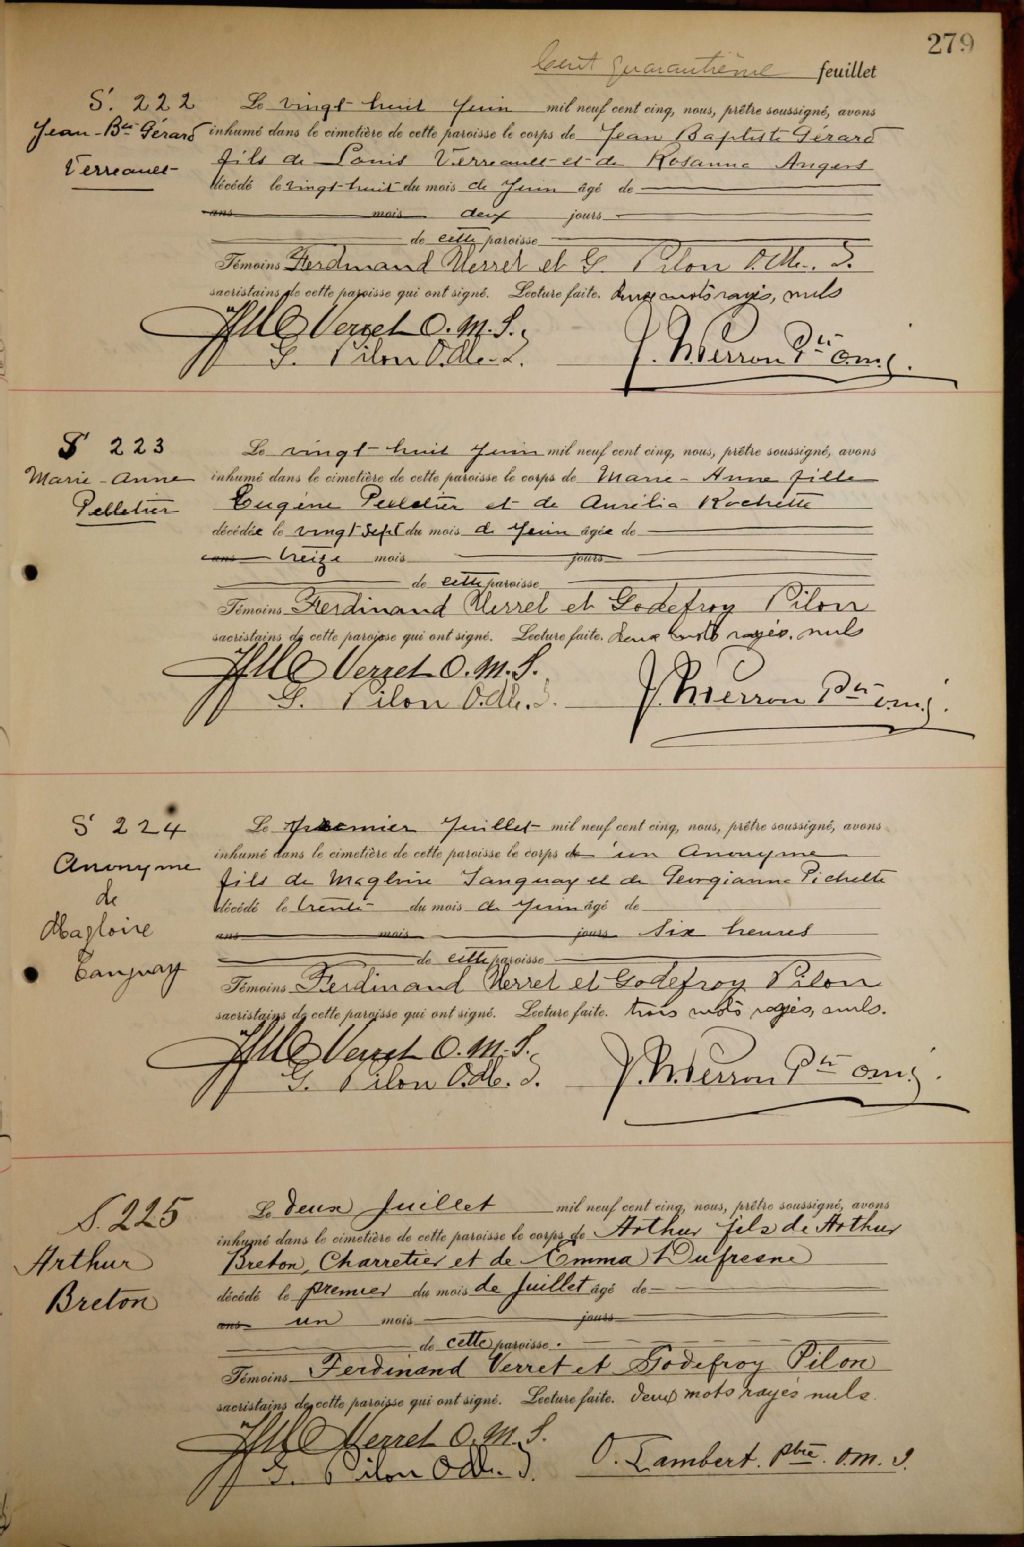 279
Cent quarantième feuillet
S. 222
Jean-Bte Gérard
Verreault
Le vingt huit Juin mil neuf cent cinq, nous, prêtre soussigné, avons
inhumé dans le cimetière de cette paroisse le corps de Jean Baptiste Gérard
fils de Louis Verreault et de Rosanna Angers
décédé le vingt-huit du mois de Juin âgé de
ans mois deux jours
de cette paroisse
Témoins Ferdinand Verret et G. Pilon O.M.I.
sacristains de cette paroisse qui ont signé. Lecture faite. deux mots rayés, nuls
Verret O.M.I.
G. Pilon O.M.I. J. N. Perron Ptre o.m.i.
S 223
Marie-Anne
Pelletier
Le vingt-huit Juin mil neuf cent cinq, nous, prêtre soussigné, avons
inhumé dans le cimetière de cette paroisse le corps de Marie-Anne fille
Eugène Pelletier et de Aurélia Rochette
décédée le vingt sept du mois de Juin âgée de
ans treize mois jours
de cette paroisse
Témoins Ferdinand Verret et Godefroy Pilon
sacristains de cette paroisse qui ont signé. Lecture faite. deux mots rayés, nuls
Verret O.M.I.
G. Pilon O.M.I. J. N. Perron Ptre o.m.i.
S 224
Anonyme
de
Magloire
Tanguay
Le premier Juillet mil neuf cent cinq, nous, prêtre soussigné, avons
inhumé dans le cimetière de cette paroisse le corps de un Anonyme
fils de Magloire Tanguay et de Georgianna Pichette
décédé le trente du mois de Juin âgé de
ans mois jours six heures
de cette paroisse
Témoins Ferdinand Verret et Godefroy Pilon
sacristains de cette paroisse qui ont signé. Lecture faite. trois mots rayés, nuls.
Verret O.M.I.
G. Pilon O.M.I. J. N. Perron Ptre o.m.i.
S. 225
Arthur
Breton
Le deux Juillet mil neuf cent cinq, nous, prêtre soussigné, avons
inhumé dans le cimetière de cette paroisse le corps de Arthur fils de Arthur
Breton, Charretier et de Emma Dufresne
décédé le premier du mois de Juillet âgé de
ans un mois jours
de cette paroisse.
Témoins Ferdinand Verret et Godefroy Pilon
sacristains de cette paroisse qui ont signé. Lecture faite. deux mots rayés nuls
Verret O.M.I.
G. Pilon O.M.I. O. Lambert. ptre. o.m.i.